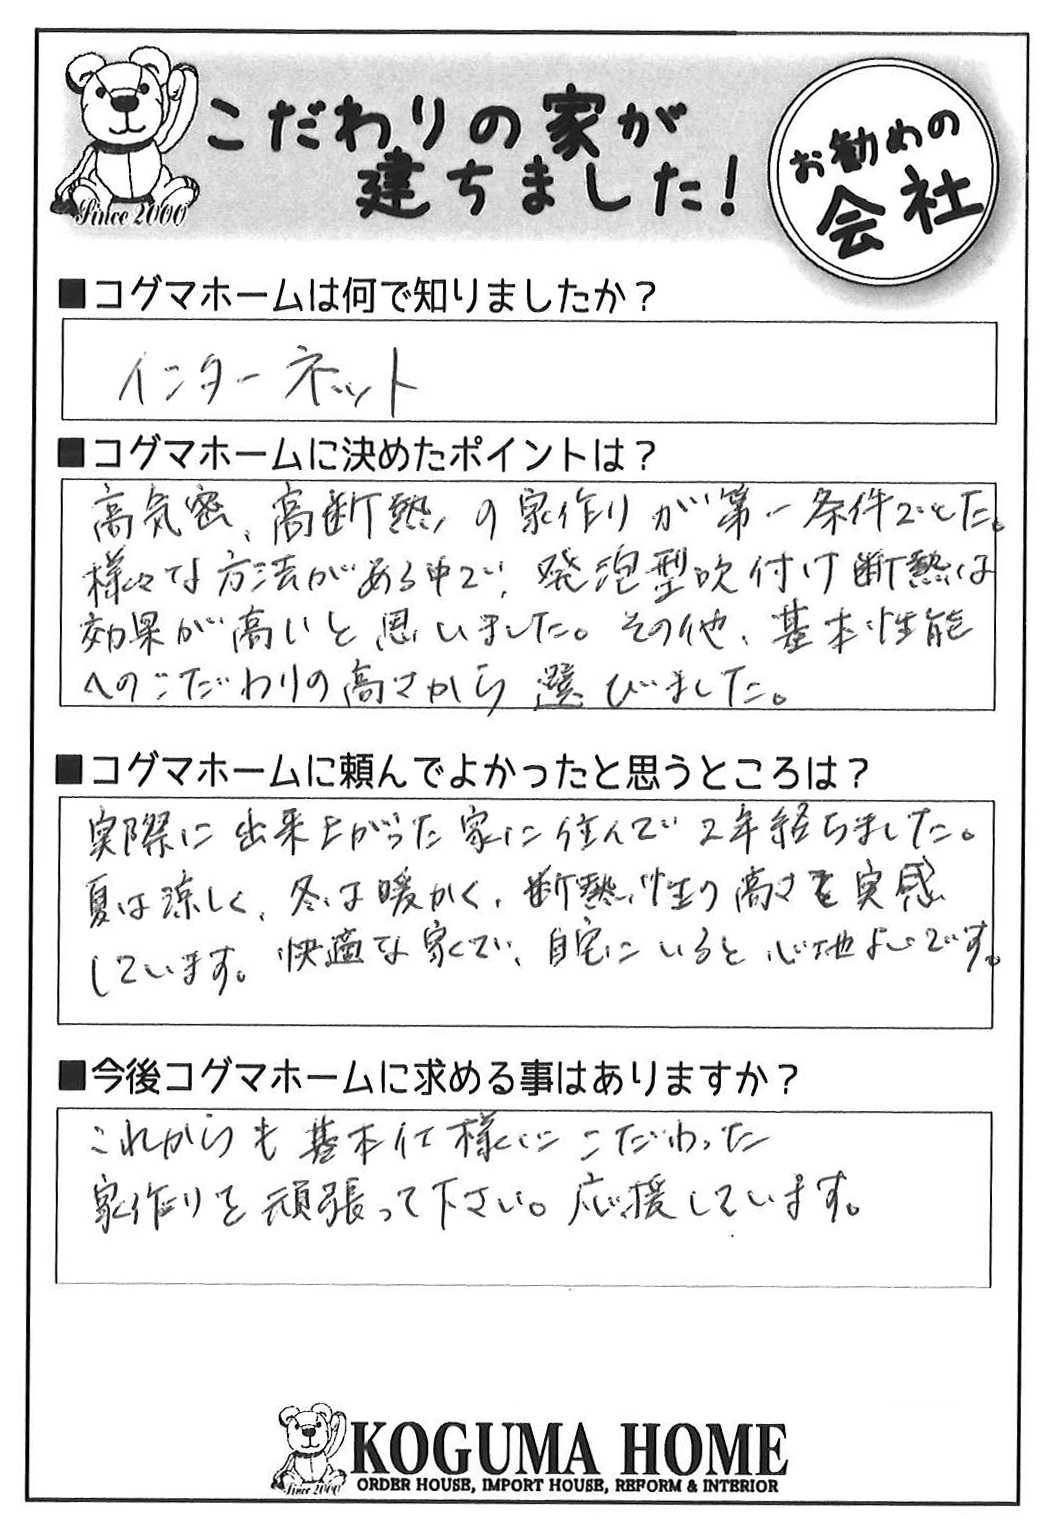 こだわりの家が
建ちました！
お勧めの
会社
Since 2000
■コグマホームは何で知りましたか？
インターネット
■コグマホームに決めたポイントは？
高気密、高断熱の家作りが第一条件でした。
様々な方法がある中で、発泡型吹付け断熱は
効果が高いと思いました。その他、基本性能
へのこだわりの高さから選びました。
■コグマホームに頼んでよかったと思うところは？
実際に出来上がった家に住んで2年経ちました。
夏は涼しく、冬は暖かく、断熱性の高さを実感
しています。快適な家で、自宅にいると心地よいです。
■今後コグマホームに求める事はありますか？
これからも基本仕様にこだわった
家作りを頑張って下さい。応援しています。
KOGUMA HOME
Since 2000
ORDER HOUSE, IMPORT HOUSE, REFORM & INTERIOR